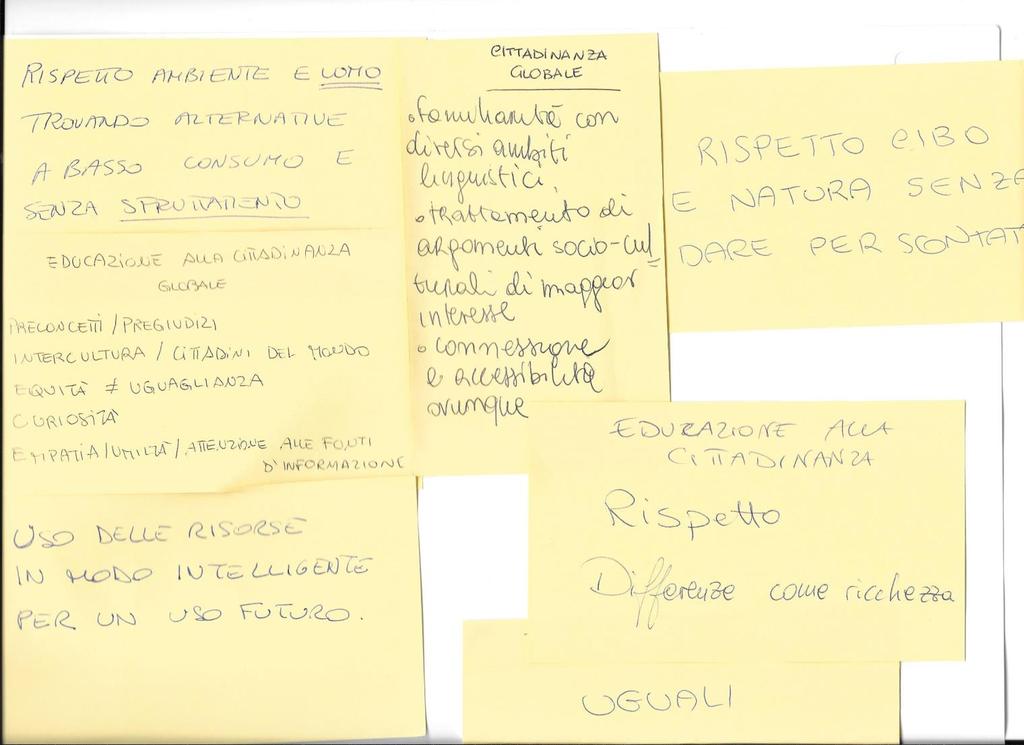 RISPETTO AMBIENTE E UOMO
TROVANDO ALTERNATIVE
A BASSO CONSUMO E
SENZA SFRUTTAMENTO
EDUCAZIONE ALLA CITTADINANZA
GLOBALE
PRECONCETTI / PREGIUDIZI
INTERCULTURA / CITTADINI DEL MONDO
EQUITÀ ≠ UGUAGLIANZA
CURIOSITÀ
EMPATIA / UMILTÀ / ATTENZIONE ALLE FONTI
D'INFORMAZIONE
USO DELLE RISORSE
IN MODO INTELLIGENTE
PER UN USO FUTURO.
CITTADINANZA
GLOBALE
• familiarità con
diversi ambiti
linguistici,
• trattamento di
argomenti socio-cul
turali di maggior
interesse
• connessione
e accessibilità
ovunque
RISPETTO CIBO
E NATURA SENZA
DARE PER SCONTAT
EDUCAZIONE ALLA
CITTADINANZA
Rispetto
Differenze come ricchezza
UGUALI